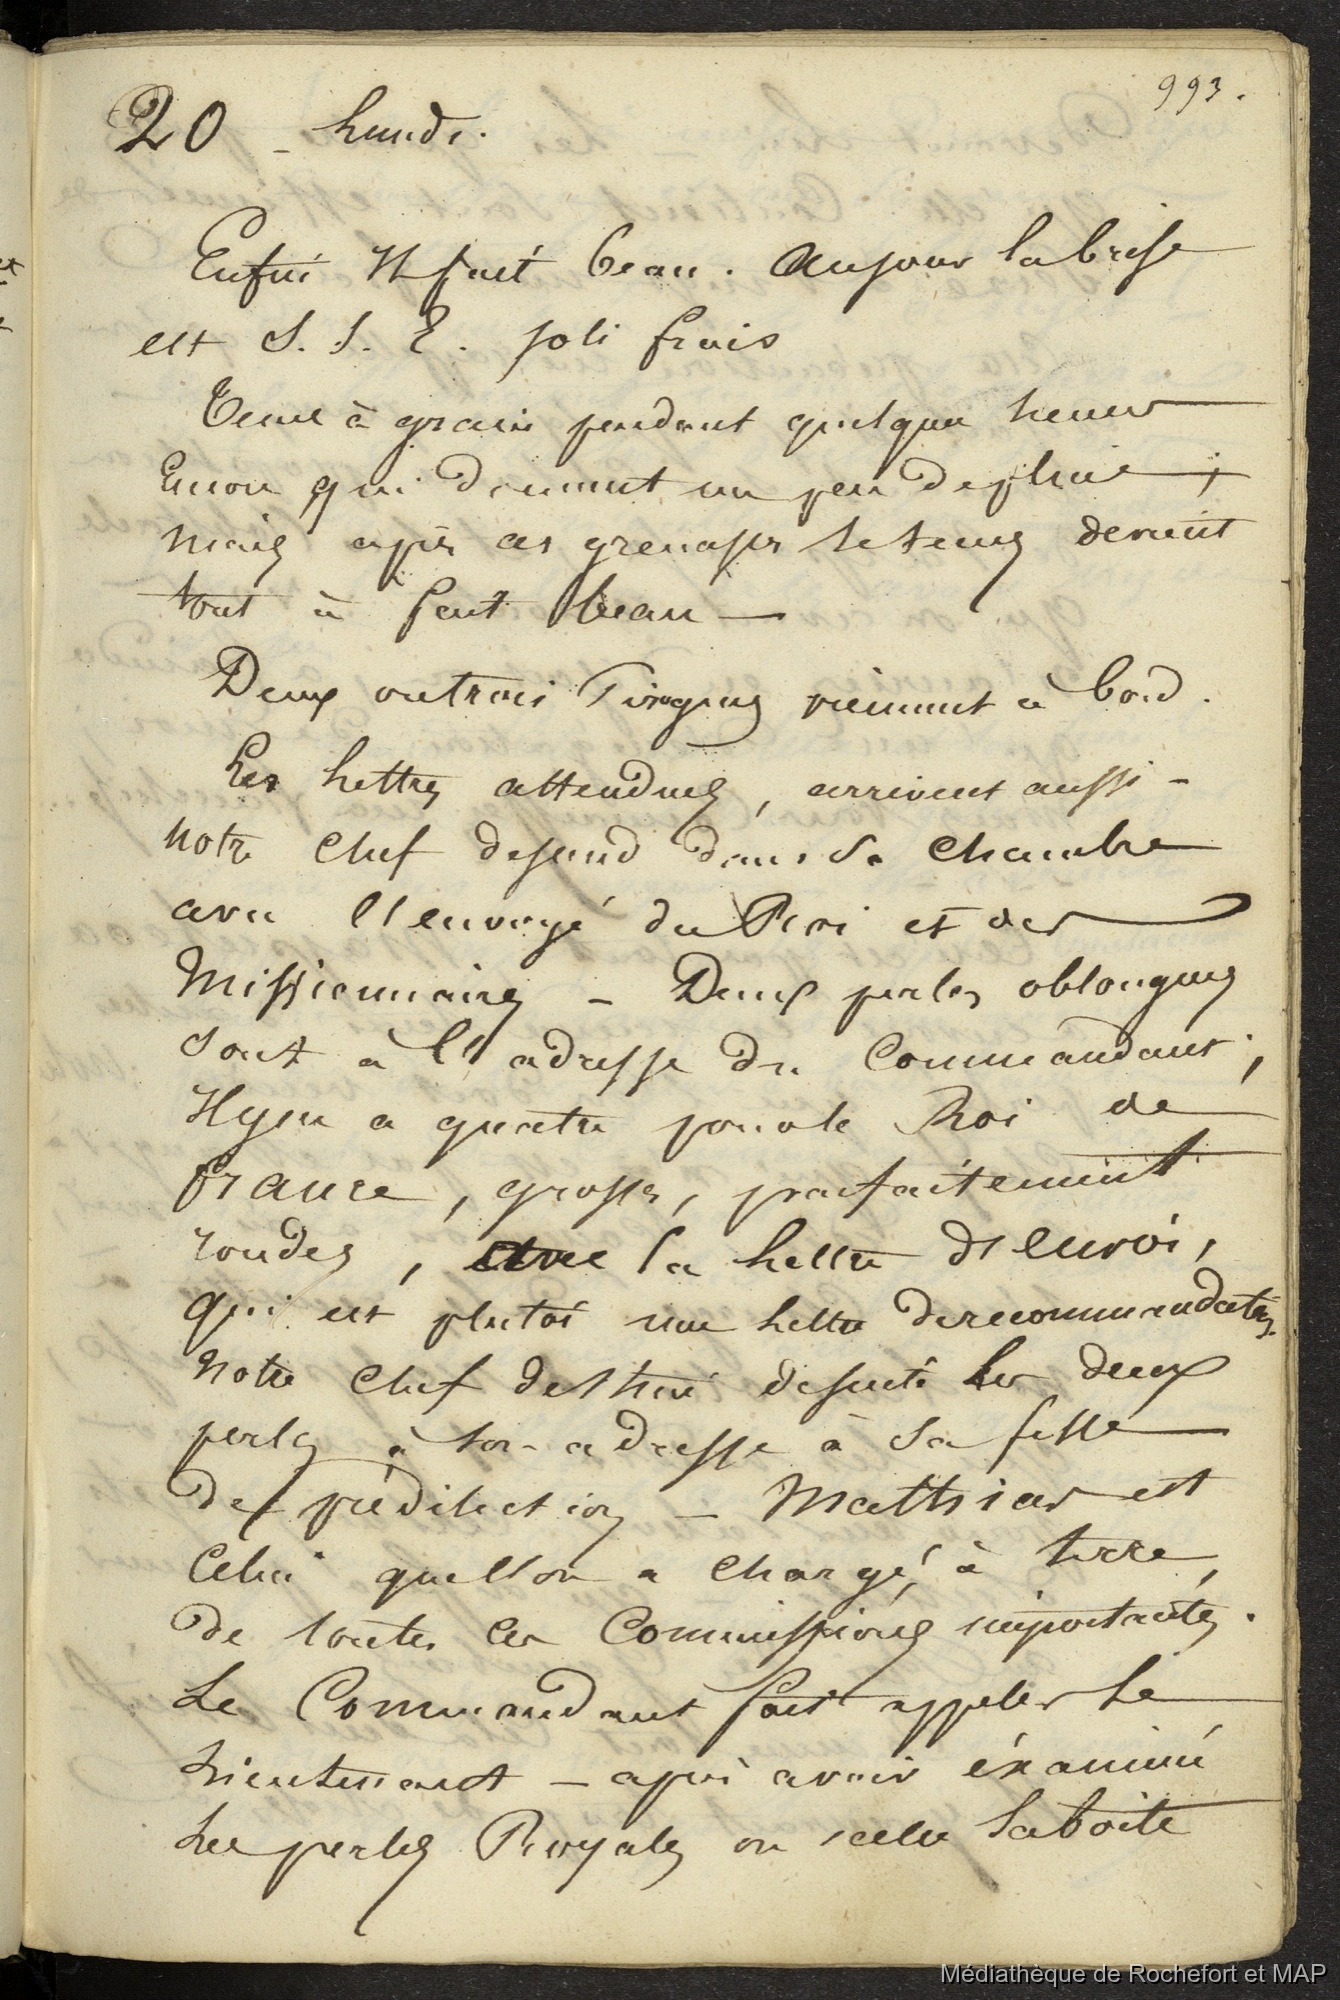 993.
20 _ Lundi.
Enfin Il fait beau. Au jour la brise
est S. S. E. joli frais
Tems à grains pendant quelques heures
Encore qui donnent un peu de pluie ;
mais après ces grenasses le tems devient
tout à fait beau —
Deux ou trois Pirogues viennent à bord.
Les Lettres attendues, arrivent aussi -
notre Chef descend dans sa Chambre
avec l'envoyé du Roi et des
Missionnaires - Deux perles oblongues
sont à l'adresse du Commandant ;
Il y en a quatre pour le Roi de
france, grosses, parfaitement
rondes, avec la Lettre d'envoi,
qui est plutôt une Lettre de recommandation.
Notre Chef destine de suite les deux
perles à son adresse à sa fille
de prédilection - Matthias est
Celui que l'on a chargé, à terre,
de toutes ces Commissions importantes.
Le Commandant fait appeler Le
Lieutenant - après avoir éxaminé
Les perles Royales on scelle la boîte
Médiathèque de Rochefort et MAP